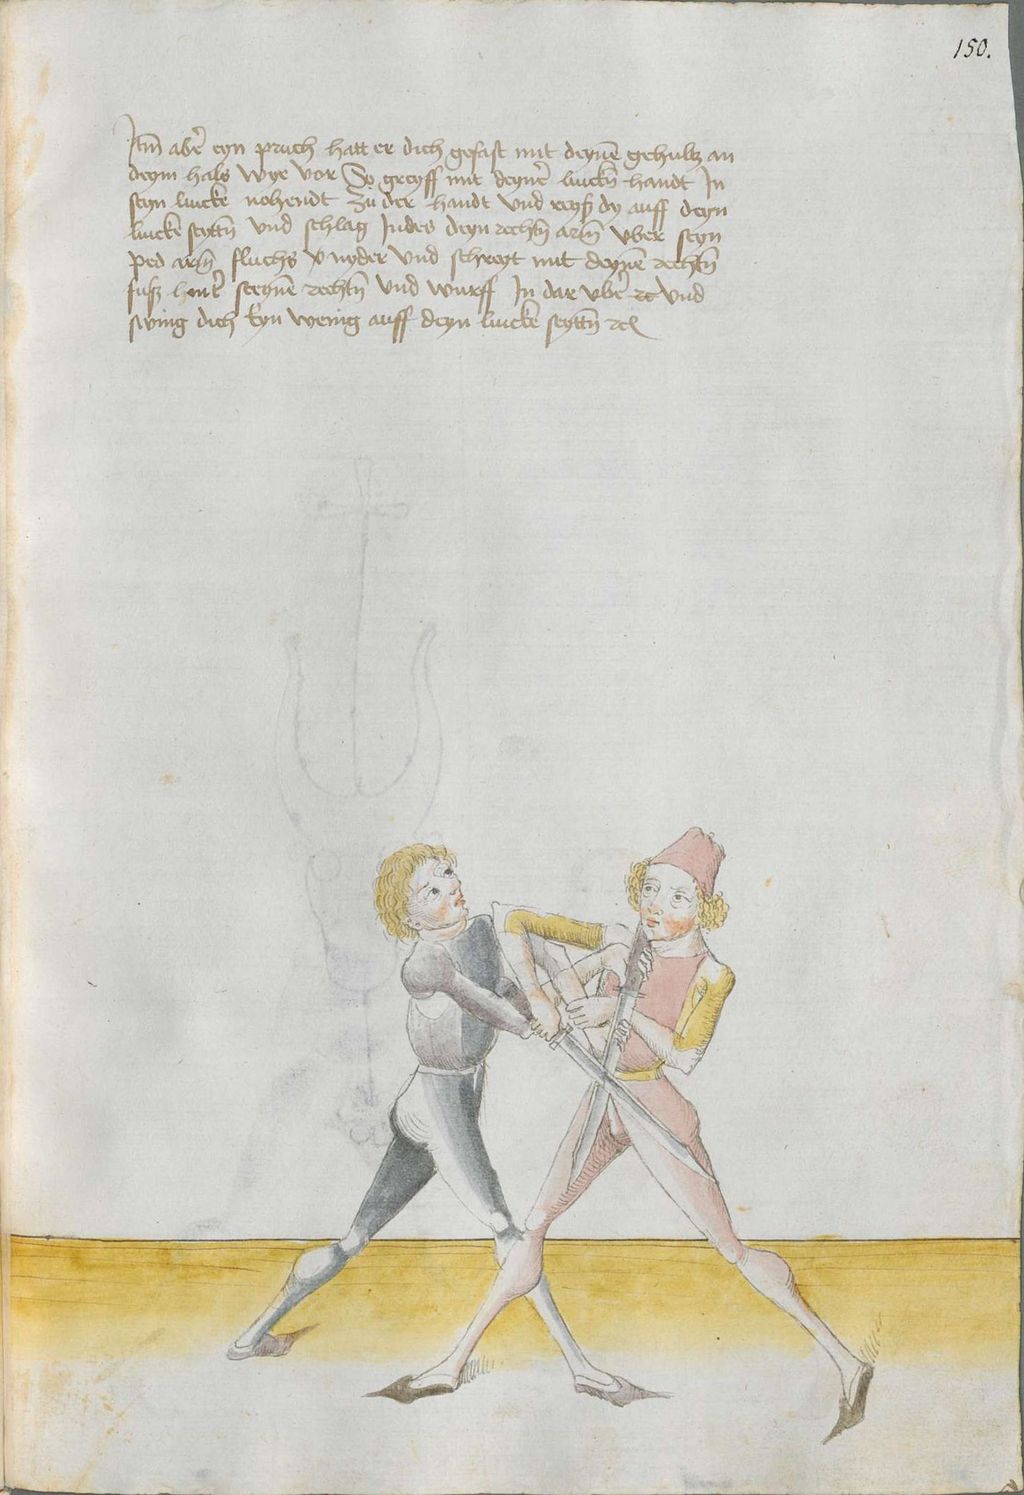 150.
Itm̄ abẽ eyn pruch hatt er dich gefast mit deynẽ gehultz an
deym hals wye vor So greyff mit deynẽ linckñ handt In
seyn lincke nohendt zu der handt vnd reyß dy auff deyn
lincke seyttñ vnd schlag Indes deyn rechtñ arm̄ vber seyn
ped arm̄ fluchs nyder vnd schreyt mit deynẽ rechtñ
fusz hint̃ seynẽ rechtñ vnd wurff In dar vbẽ ꝛc vnd
swing dich Eyn wenig auff deyn lincke seyttñ ꝛcl